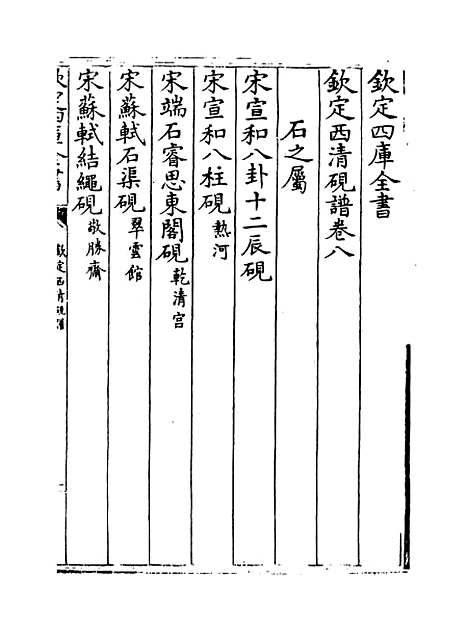 欽定四庫全書
欽定西清硯譜卷八
石之屬
宋宣和八卦十二辰硯
宋宣和八柱硯熱河
宋端石睿思東閣硯乾清宮
宋蘇軾石渠硯翠雲館
宋蘇軾結繩硯敬勝齋
欽定西清硯譜